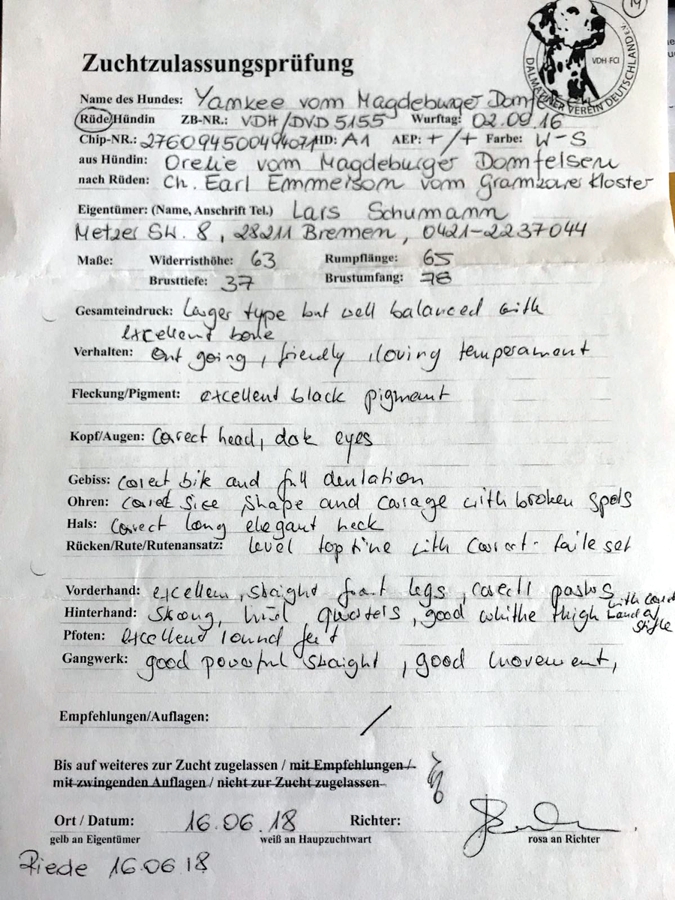 14
DALMATINER VEREIN DEUTSCHLAND e.V.
VDH · FCI
Zuchtzulassungsprüfung
Name des Hundes: Yankee vom Magdeburger Domfelsen
Rüde/Hündin ZB-NR.: VDH/DVD 5155 Wurftag: 02.09.16
Chip-NR.: HD: A1 AEP: +/+ Farbe: W-S
aus Hündin: Orelie vom Magdeburger Domfelsen
nach Rüden: Ch. Earl Emmerson vom Gramzower Kloster
Eigentümer: (Name, Anschrift Tel.) Lars Schumann
Metzer Str. 8, 28211 Bremen, 0421-2237044
Maße: Widerristhöhe: 63 Rumpflänge: 65
Brusttiefe: 37 Brustumfang: 78
Gesamteindruck: Larger type but well balanced with
excellent bone
Verhalten: Out going, friendly, loving temperament
Fleckung/Pigment: excellent black pigment
Kopf/Augen: Corect head, dak eyes
Gebiss: corect bite and full dentation
Ohren: corect size, shape and carage with broken spots
Hals: Corect long elegant neck
Rücken/Rute/Rutenansatz: level top line with corect taile set
Vorderhand: excellent, staight front legs, corect with
Hinterhand: Strong, hind quaters, good thigh
stifle
Pfoten: excellent round feet
Gangwerk: good powerful staight, good movement,
Empfehlungen/Auflagen: /
Bis auf weiteres zur Zucht zugelassen / mit Empfehlungen /
mit zwingenden Auflagen / nicht zur Zucht zugelassen
Ort / Datum: 16.06.18 Richter:
gelb an Eigentümer weiß an Haupzuchtwart rosa an Richter
Riede 16.06.18